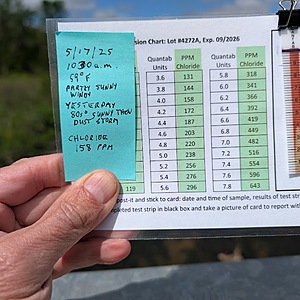 5/17/25
1030 a.m.
59°F
PARTLY SUNNY
WINDY
YESTERDAY
80s° SUNNY THEN
DUST STORM
CHLORIDE
158 PPM
sion Chart: Lot #4272A, Exp. 09/2026
Quantab Units PPM Chloride Quantab Units PPM Chloride
3.6 131 5.8 318
3.8 144 6.0 341
4.0 158 6.2 366
4.2 172 6.4 392
4.4 187 6.6 419
4.6 203 6.8 449
4.8 220 7.0 482
5.0 238 7.2 516
5.2 256 7.4 554
5.4 276 7.6 596
119 5.6 296 7.8 643
post-it and stick to card: date and time of sample, results of test str
pleted test strip in black box and take a picture of card to report with